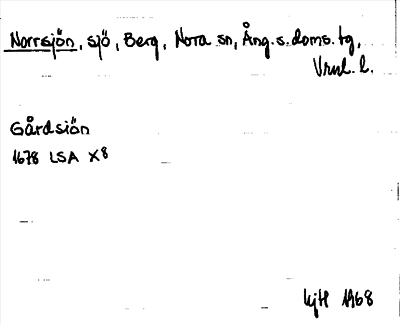 Norrsjön, sjö, Berg, Nora sn, Ång. s. doms. tg,
Vrnl. l.
Gårdsiön
1678 LSA X8
KjH 1968